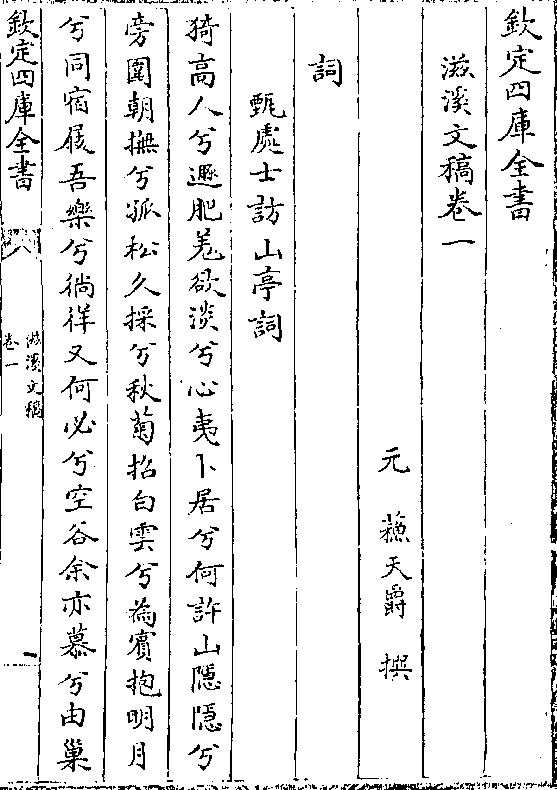 欽定四庫全書
滋溪文稿卷一
元 蘇天爵 撰
詞
甄處士訪山亭詞
猗高人兮遯肥羗欲淡兮心夷卜居兮何許山隱隱兮
旁圍朝撫兮孤松久採兮秋菊招白雲兮為賓抱明月
兮同宿展吾樂兮徜徉又何必兮空谷余亦慕兮由巢
欽定四庫全書
滋溪文稿
卷一
一